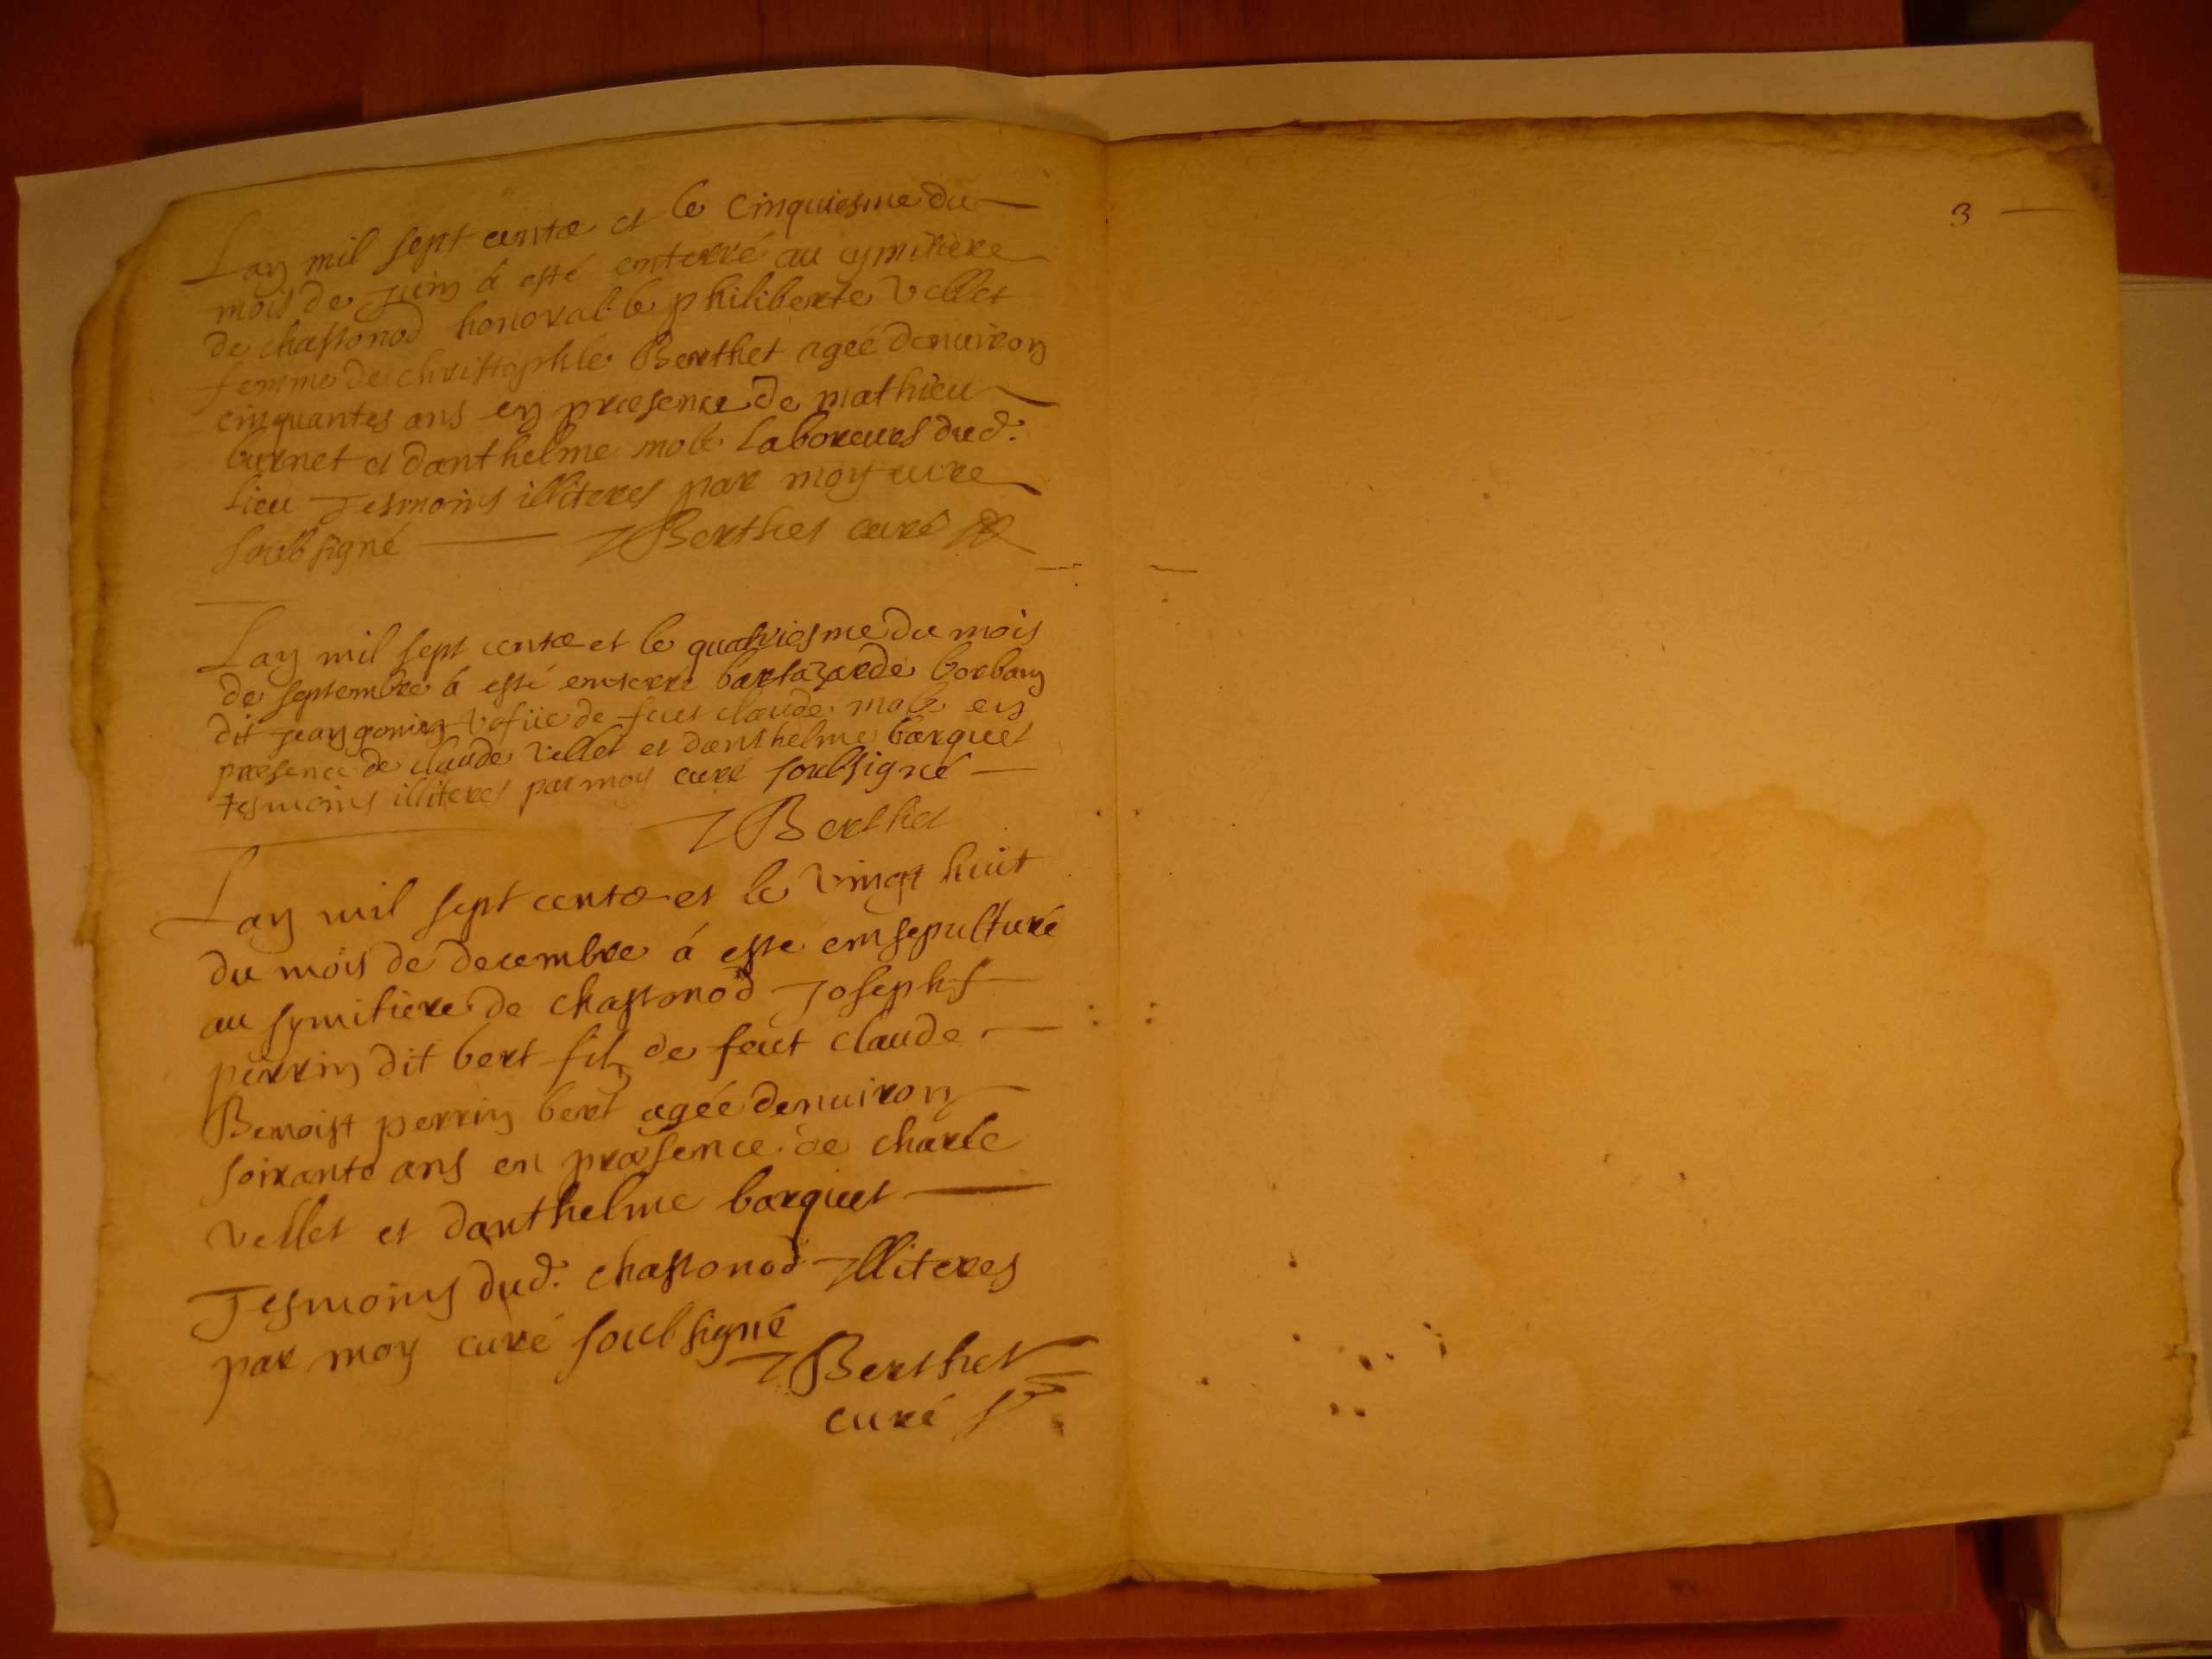 Lan mil sept cents et le cinquiesme du
mois de juin á esté enterré au cymitiere
de chastonod honorable philiberte vellet
femme de christophle Berthet ageé denuiron
cinquantes ans en præsence de mathieu
burnet et danthelme mole laboreurs dud.
lieu Tesmoins illiteres par moy cure
soubsigné Berthet curé
Lan mil sept cents et le quatriesme du mois
de septembre á esté enterré bartazarde borban
dit jean vefüe de feut claude mole en
præsence de claude vellet et danthelme barquet
tesmoins illiteres par moy curé soubsigné
Berthet
Lan mil sept cents et le vingt huit
du mois de decembre á este ensepulturé
au symitiere de chastonod Joseph f
perrin dit bert filz de feut claude
Benoist perrin bert agée denuiron
soixante ans en præsence de charle
vellet et danthelme barquet
Tesmoins dud. chastonod Illiteres
par moy curé soubsigné
Berthet
curé
3